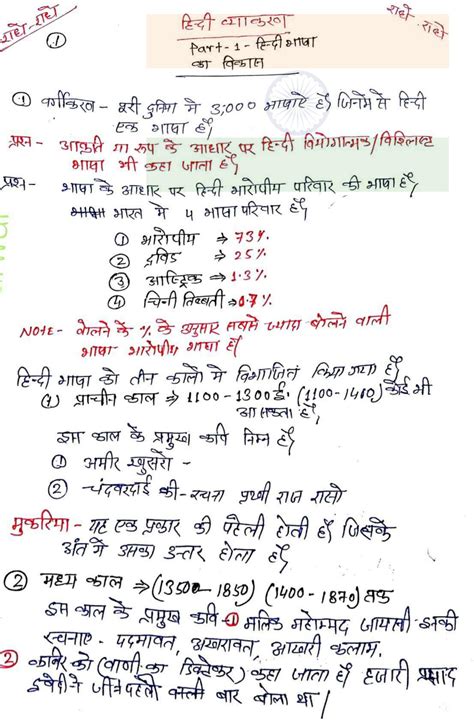 राधे-राधे
राधे-राधे
①
हिन्दी व्याकरण
Part-1- हिन्दी भाषा
का विकास
① वर्गीकरण - पूरी दुनिया मे 3,000 भाषाऐ हैं जिनमेंसे हिन्दी
एक भाषा हैं
प्रश्न- आकृती या रूप के आधार पर हिन्दी वियोगात्मक/विश्लिष्ट
भाषा भी कहा जाता हैं
प्रश्न- भाषा के आधार पर हिन्दी भारोपीय परिवार की भाषा हैं
भारत मे 4 भाषा परिवार हैं
① भारोपीय ⇒ 73%
② द्रविड ⇒ 25%
③ आस्ट्रिक ⇒ 1.3%
④ चिनी तिब्बती ⇒ 0.7%
NOTE - बोलने के % के अनुसार सबसे ज्यादा बोलने वाली
भाषा भारोपीय भाषा हैं
हिन्दी भाषा को तीन कालो मे विभाजित किया गया हैं
① प्राचीन काल ⇒ 1100-1300ई. (1100-1400) कोई भी
आ सकता हैं
इस काल के प्रमुख कवि निम्न हैं
① अमीर खुसरो -
② चंदवरदाई की - रचना पृथ्वी राज रासो
मुकरिया - यह एक प्रकार की पहेली होती हैं जिसके
अंत मे उसका उत्तर होता हैं
② मध्य काल ⇒ (1350-1850) (1400-1870) तक
इस काल के प्रमुख कवि - ① मलिक मोहम्मद जायसी इनकी
रचनाए- पदमावत, अखरावत, आखरी कलाम,
② कबिर को (वाणी का डिक्टेटर) कहा जाता हैं हजारी प्रसाद
द्विवेदी ने बार बोला था।